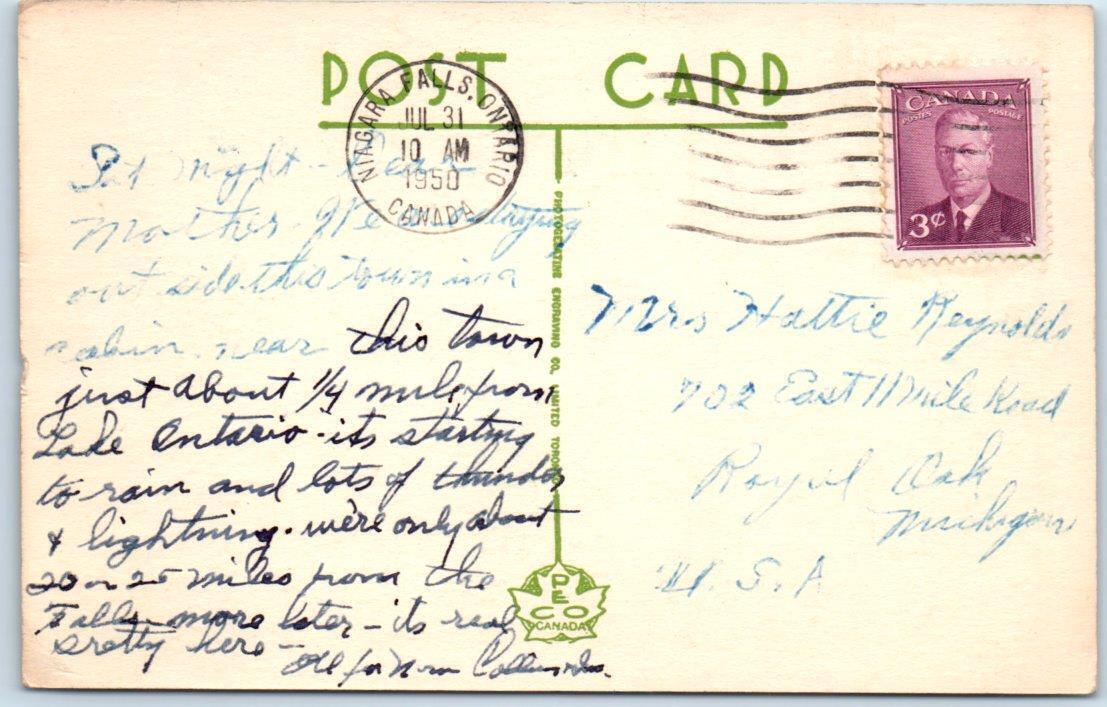 POST CARD
NIAGARA FALLS, ONTARIO
JUL 31
10 AM
1950
CANADA
CANADA
POSTES POSTAGE
3¢
Sat Night - Dear
Mother - We staying
out side this town in a
cabin. near this town
just about 1/4 mile from
Lake Ontario - its starting
to rain and lots of thunder
& lightning. we're only about
20 or 25 miles from the
Falls - more later - its real
pretty here -
All for now
PHOTOGELATINE ENGRAVING CO. LIMITED TORONTO
Mrs Hattie Reynolds
702 East 11 Mile Road
Royal Oak
Michigan
U.S.A
PECO
CANADA